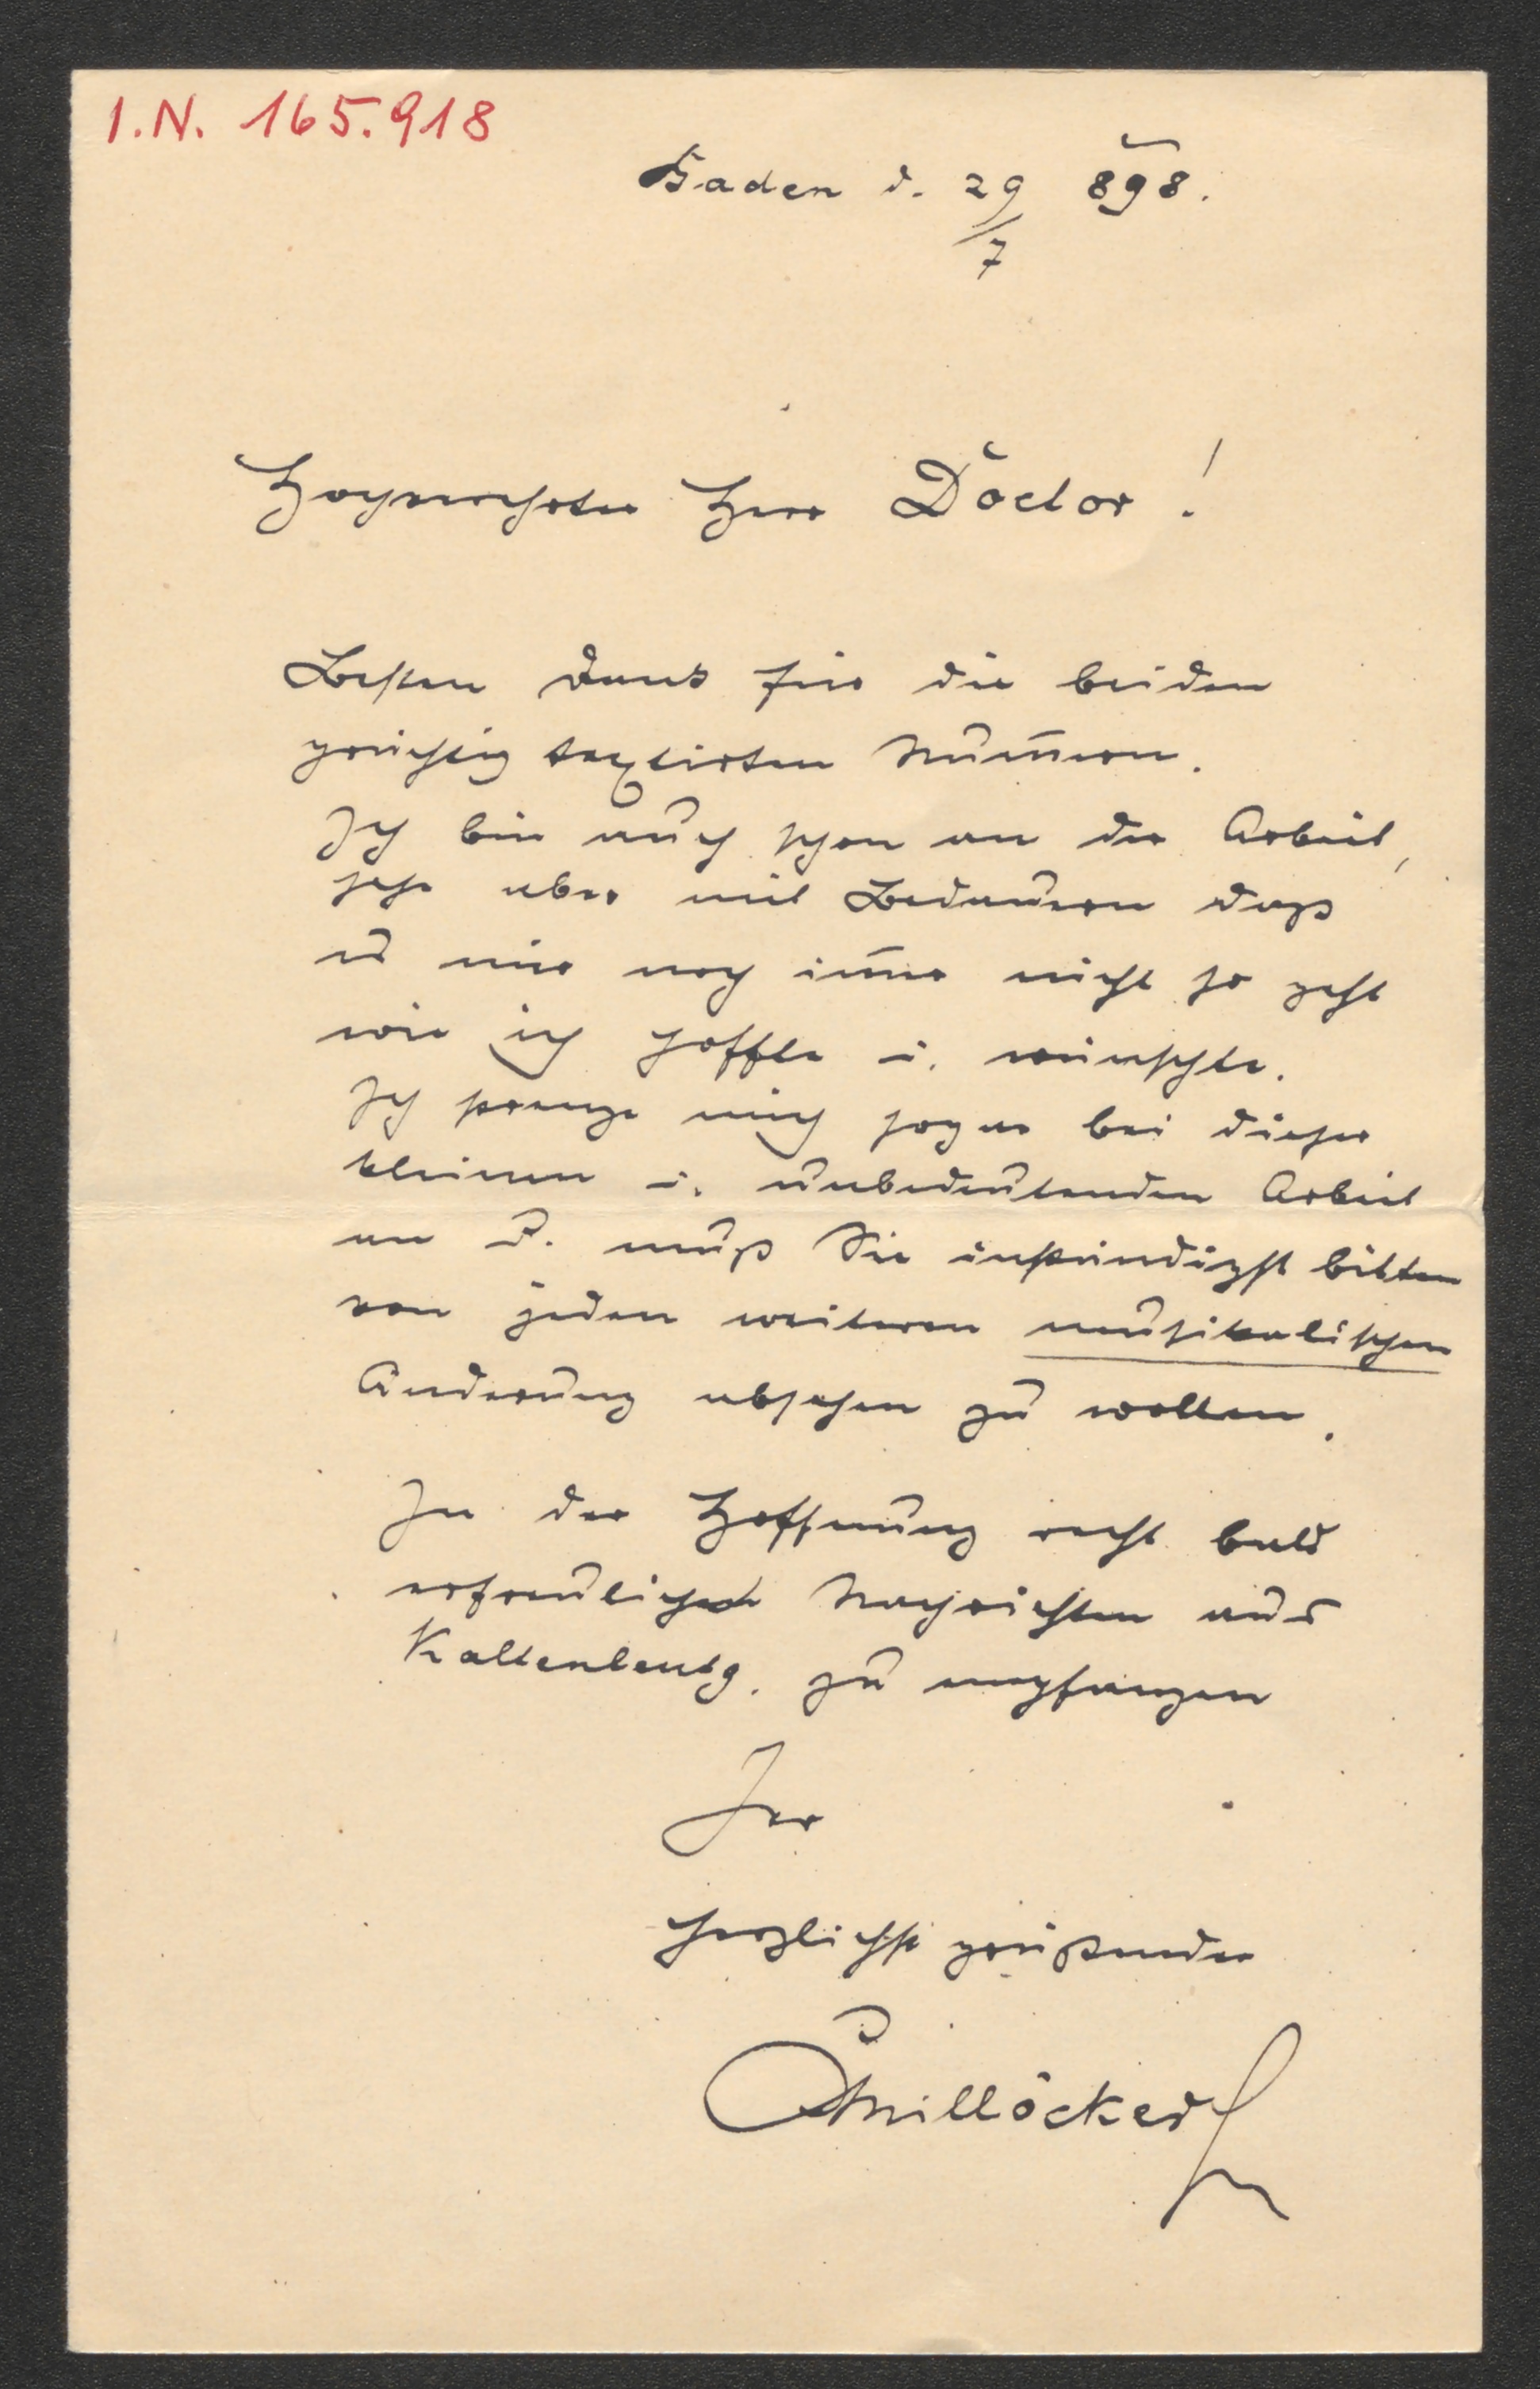 I.N. 165.918
Baden d. 29/7 898.
Hochverehrter Herr Doctor!
Besten Dank für die beiden
prächtig textirten Num̄ern.
Ich bin auch schon an der Arbeit,
sehe aber mit Bedauern daß
es mir noch im̄er nicht so geht
wie ich hoffte u. wünschte.
Ich strenge mich sogar bei dieser
kleinen u. unbedeutenden Arbeit
an u. muß Sie inständigst bitten
von jeden weiteren musikalischen
Änderung absehen zu wollen.
In der Hoffnung recht bald
erfreuliche Nachrichten aus
Kaltenleutg. zu empfangen
Ihr
herzlichst grüßender
CMillöcker